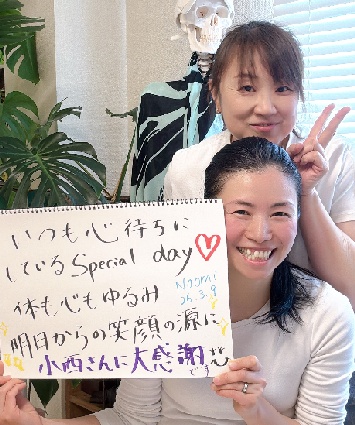 いつも心待ちに
している Special day♡
体も心もゆるみ
Naomi
25.3.9
明日からの笑顔の源に
小西さんに大感謝です